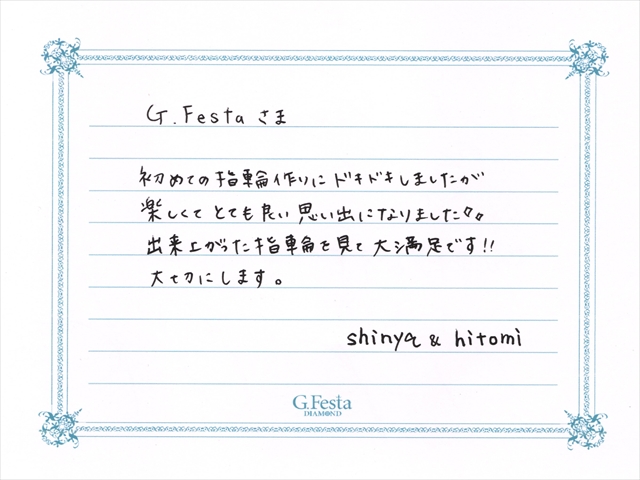 G.Festa さま
初めての指輪作りにドキドキしましたが
楽しくてとても良い思い出になりました。。
出来上がた指輪を見て大満足です!!
大切にします。
shinya & hitomi
G.Festa
DIAMOND